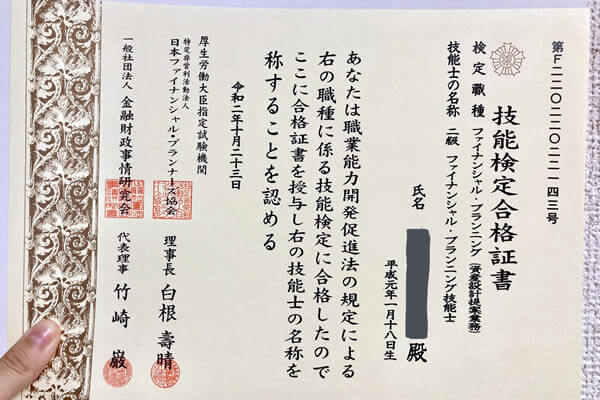 第F二二二〇二二二〇二二二一四三号
技能検定合格証書
検定職種 ファイナンシャル・プランニング(資産設計提案業務)
技能士の名称 二級 ファイナンシャル・プランニング技能士
氏名 殿
平成元年一月十八日生
あなたは職業能力開発促進法の規定による
右の職種に係る技能検定に合格したので
ここに合格証書を授与し右の技能士の名称を
称することを認める
令和二年十月二十三日
厚生労働大臣指定試験機関
特定非営利活動法人
日本ファイナンシャル・プランナーズ協会 理事長 白根壽晴
一般社団法人 金融財政事情研究会 代表理事 竹崎巌